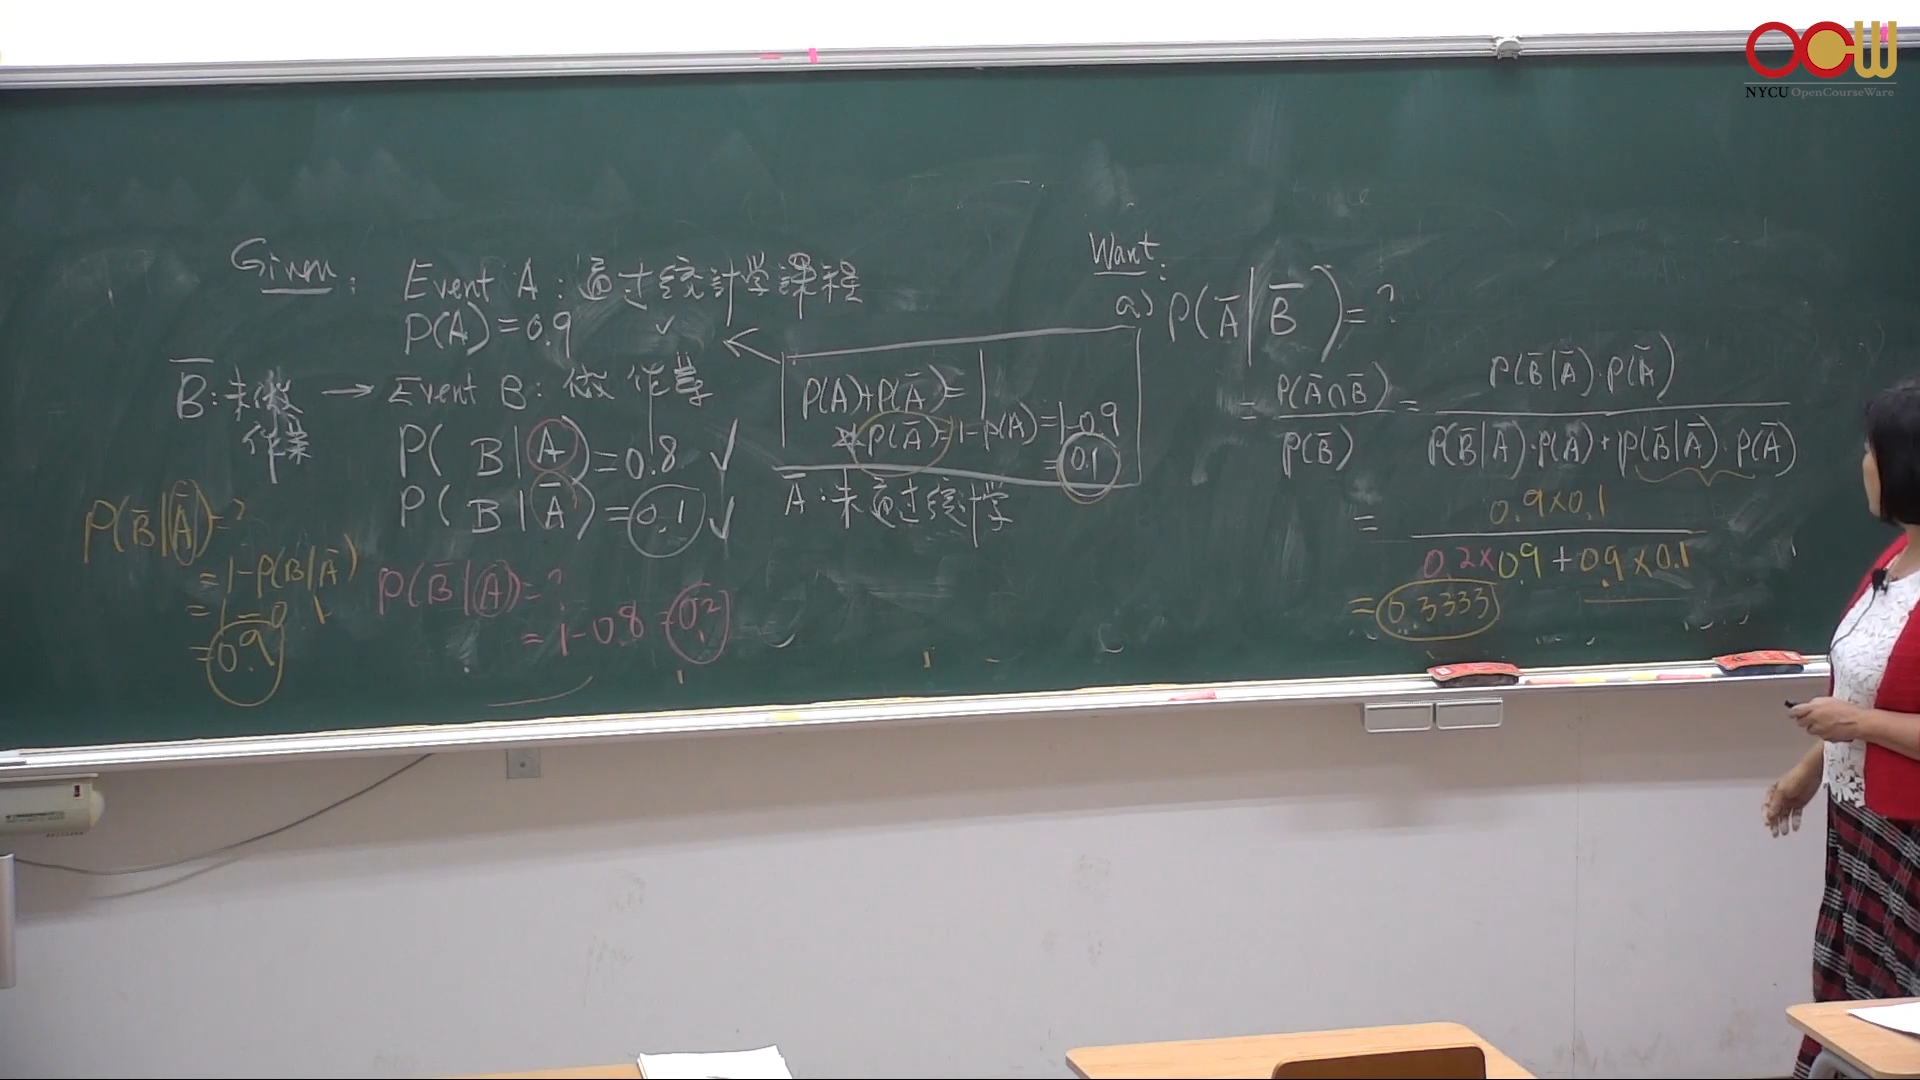 OCW
NYCU OpenCourseWare
Given:
Event A: 通过統計学課程
P(A)=0.9
B̅:未做作業
→ Event B: 做作業
P(B|A)=0.8 ✓
P(B|A̅)=0.1 ✓
P(A)+P(A̅)=1
P(A̅)=1-P(A)=1-0.9
=0.1
A̅:未通过統計学
P(B̅|A̅)=?
=1-P(B|A̅)
=1-0.1
=0.9
P(B̅|A)=?
=1-0.8=0.2
Want:
a) P(A̅|B̅)=?
=P(A̅∩B̅)/P(B̅)=P(B̅|A̅)·P(A̅)/P(B̅|A)·P(A)+P(B̅|A̅)·P(A̅)
=0.9×0.1/0.2×0.9+0.9×0.1
=0.3333